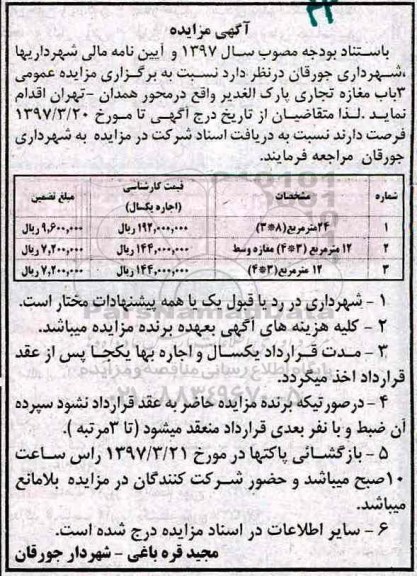 ۲۳
آگهی مزایده
باستناد بودجه مصوب سال ۱۳۹۷ و آیین نامه مالی شهرداریها
،شهرداری جورقان درنظر دارد نسبت به برگزاری مزایده عمومی
۳باب مغازه تجاری پارک الغدیر واقع درمحور همدان -تهران اقدام
نماید .لذا متقاضیان از تاریخ درج آگهی تا مورخ ۱۳۹۷/۳/۲۰
فرصت دارند نسبت به دریافت اسناد شرکت در مزایده به شهرداری
جورقان مراجعه فرمایند.
شماره مشخصات قیمت کارشناسی (اجاره یکسال) مبلغ تضمین
۱ ۲۴مترمربع(۸*۳) ۱۹۲,۰۰۰,۰۰۰ ریال ۹,۶۰۰,۰۰۰ ریال
۲ ۱۲ مترمربع (۳*۴) مغازه وسط ۱۴۴,۰۰۰,۰۰۰ ریال ۷,۲۰۰,۰۰۰ ریال
۳ ۱۲ مترمربع(۳*۴) ۱۴۴,۰۰۰,۰۰۰ ریال ۷,۲۰۰,۰۰۰ ریال
۱ - شهرداری در رد یا قبول یک یا همه پیشنهادات مختار است.
۲ - کلیه هزینه های آگهی بعهده برنده مزایده میباشد.
۳ - مدت قرارداد یکسال و اجاره بها یکجا پس از عقد
قرارداد اخذ میگردد.
۴ - درصورتیکه برنده مزایده حاضر به عقد قرارداد نشود سپرده
آن ضبط و با نفر بعدی قرارداد منعقد میشود (تا ۳مرتبه ).
۵ - بازگشائی پاکتها در مورخ ۱۳۹۷/۳/۲۱ راس ساعت
۱۰صبح میباشد و حضور شرکت کنندگان در مزایده بلامانع
میباشد.
۶ - سایر اطلاعات در اسناد مزایده درج شده است.
مجید قره باغی - شهردار جورقان
ParsNamadData
پایگاه اطلاع رسانی مناقصه و مزایده